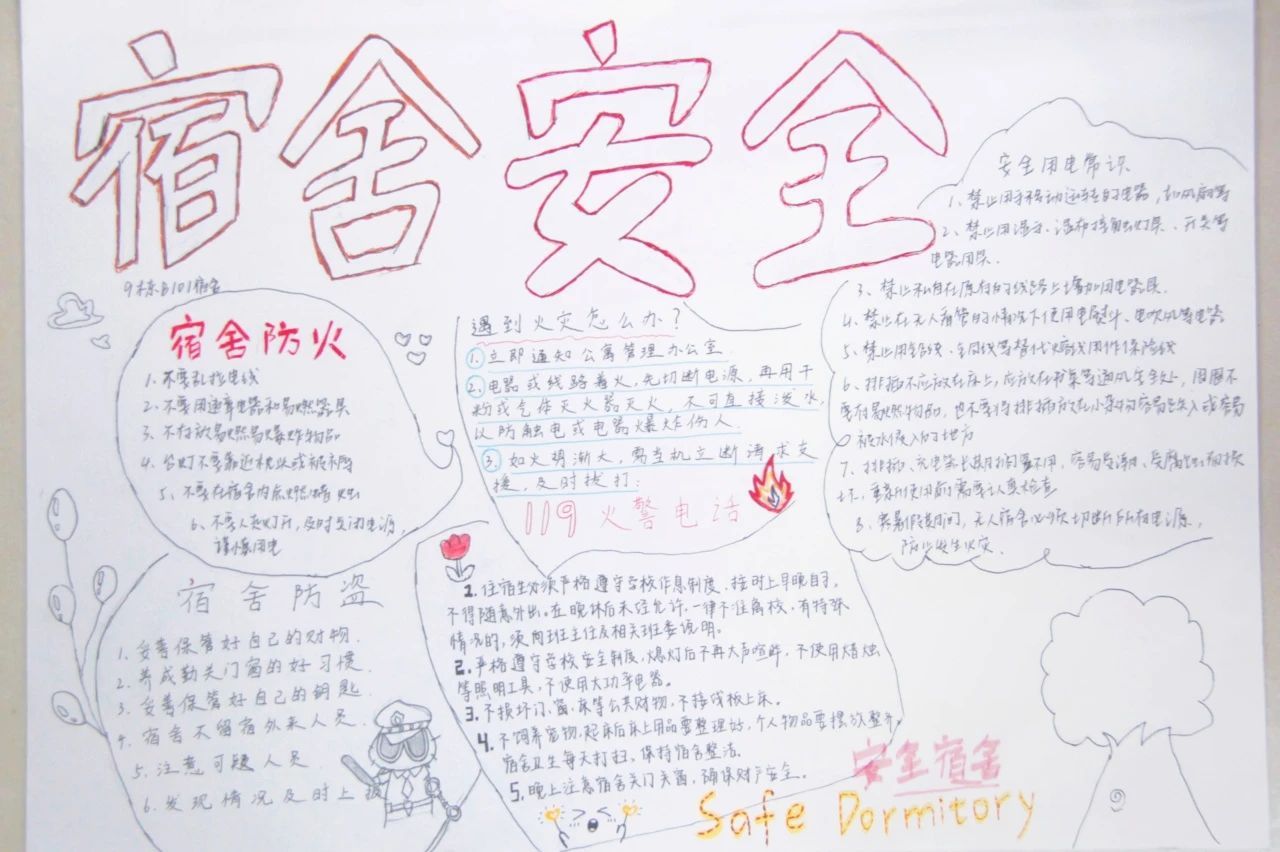 宿舍安全
9栋B101宿舍
宿舍防火
1、不要乱拉电线
2、不要用违章电器和易燃器具
3、不存放易燃易爆炸物品
4、台灯不要靠近枕头或被褥
5、不要在宿舍内点燃蜡烛
6、不要人走灯开,及时关闭电源,
谨慎用电
遇到火灾怎么办?
1.立即通知公寓管理办公室.
2.电器或线路着火,先切断电源,再用干
粉或气体灭火器灭火,不可直接泼水,
以防触电或电器爆炸伤人.
3.如火势渐大,需当机立断请求支
援,及时拨打:
119火警电话
安全用电常识
1、禁止用手移动运转的电器,如风扇等
2、禁止用湿手、湿布接触灯具、开关等
电器用具.
3、禁止私自在原有的线路上增加用电器具.
4、禁止在无人看管的情况下使用电熨斗、电吹风等电器
5、禁止用铝线、金属线等替代火熔线用作保险线
6、排插不应放在床上,应放在书桌等通风安全处,周围不
要有易燃物品,也不要将排插放在小动物容易进入或容易
被水侵入的地方
7、排插、充电器长期搁置不用,容易受潮、受腐蚀而损
坏,重新使用前需要认真检查
8、寒暑假期间,无人宿舍必须切断所有电源,
防止发生火灾.
宿舍防盗
1.妥善保管好自己的财物.
2.养成勤关门窗的好习惯.
3.妥善保管好自己的钥匙.
4.宿舍不留宿外来人员.
5.注意可疑人员.
6.发现情况及时上报
1.住宿生必须严格遵守学校作息制度,按时上早晚自习,
不得随意外出。在晚休后未经允许,一律不准离校,有特殊
情况的,须向班主任及相关班委说明。
2.严格遵守学校安全制度,熄灯后不再大声喧哗,不使用蜡烛
等照明工具,不使用大功率电器。
3.不损坏门、窗、床等公共财物,不接线板上床。
4.不饲养宠物,起床后床上用品要整理好,个人物品要摆放整齐
宿舍卫生每天打扫,保持宿舍整洁。
5.晚上注意宿舍关门关窗,确保财产安全。
安全宿舍
Safe Dormitory